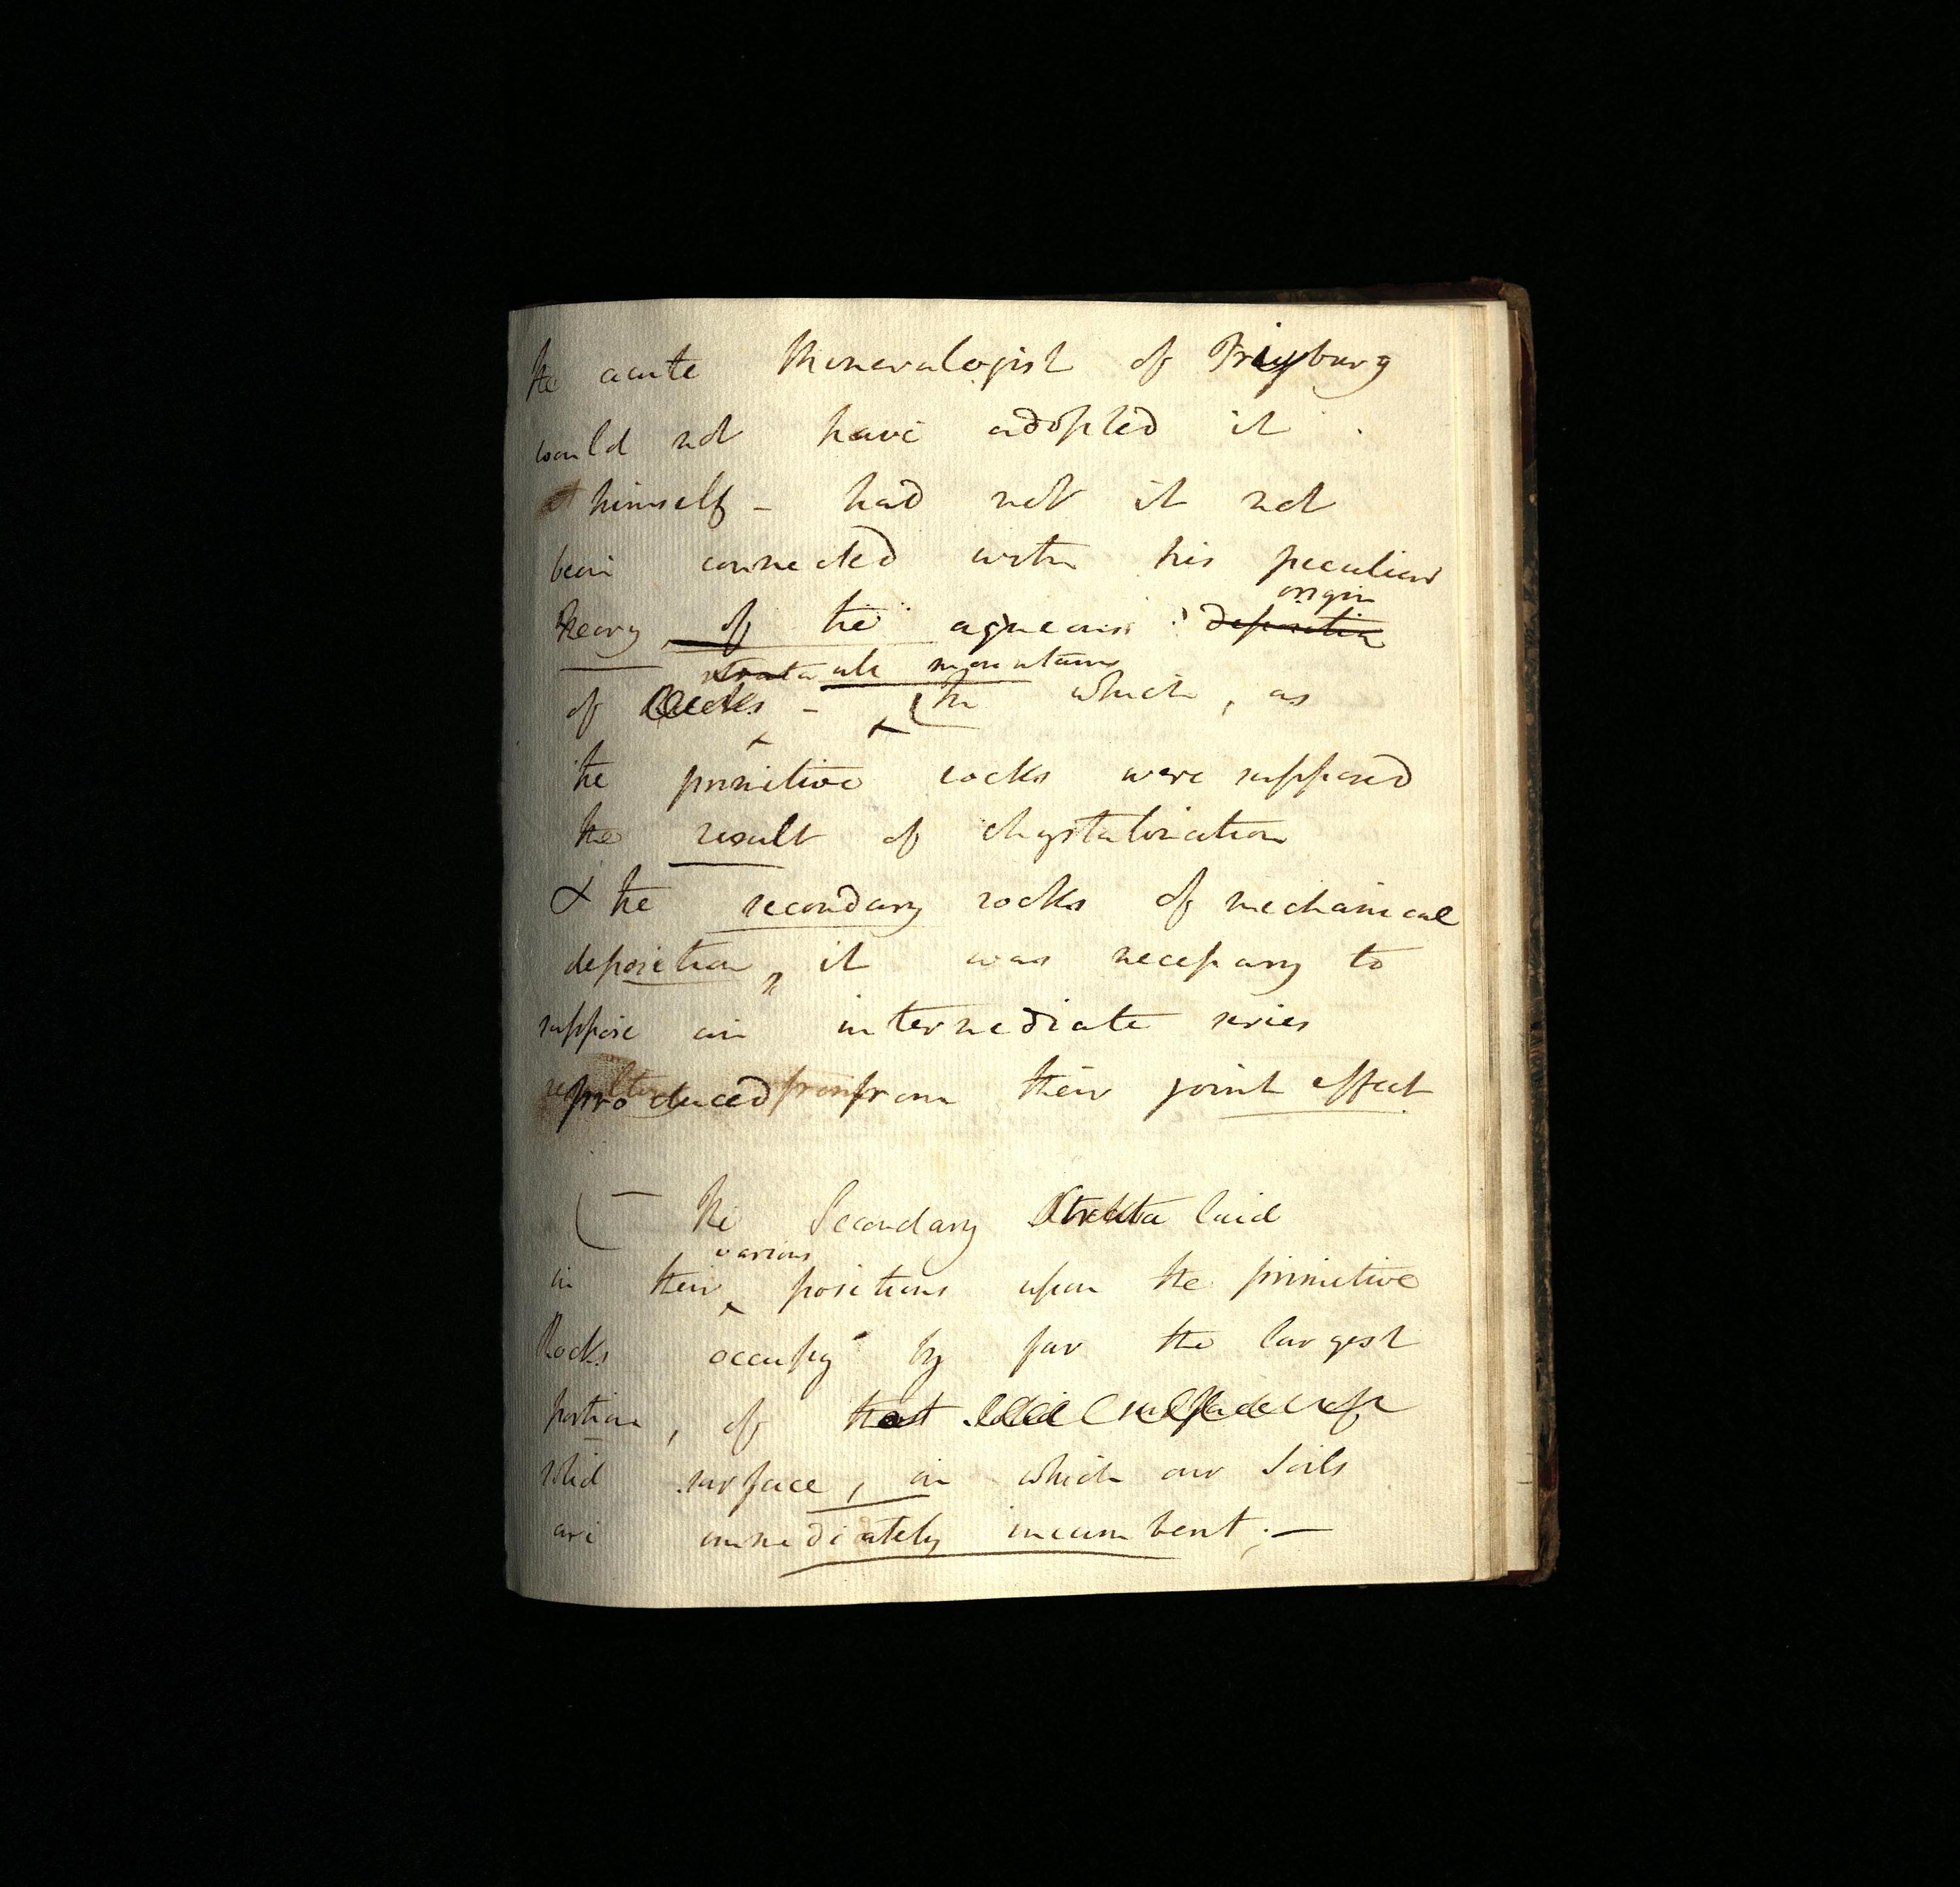 the acute Mineralogist of Freyburg
would not have adopted it
himself - had not it not
been connected with his peculiar
origin
Theory, of the aqueous deposition
strata mountains
of Rocks - In which, as
the primitive rocks were supposed
the result of chrystalization
& the secondary rocks of mechanical
deposition, it was necessary to
suppose an intermediate series
produced from from their joint effect
The Secondary Strata laid
various
in their positions upon the primitive
Rocks occupy by far the largest
portion, of that
solid surface, on which our Soils
are immediately incumbent. —